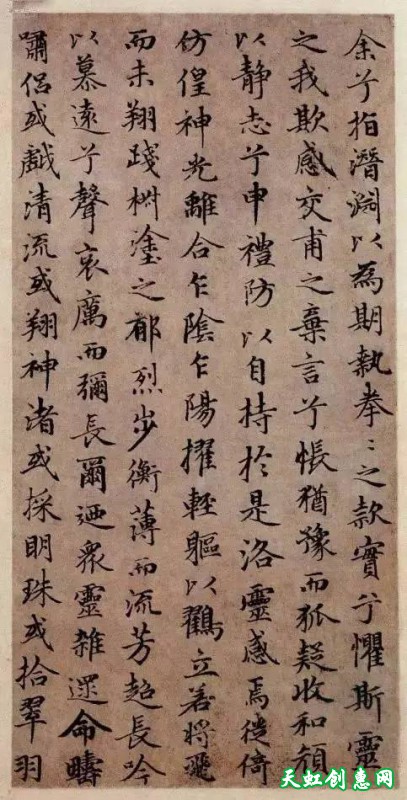 余兮指潛淵以為期執拳〻之款實兮懼斯靈
之我欺感交甫之棄言兮悵猶豫而狐疑收和顏
以靜志兮申禮防以自持於是洛靈感焉徙倚
仿偟神光離合乍陰乍陽擢輕軀以鶴立若將飛
而未翔踐椒塗之郁烈步衡薄而流芳超長吟
以慕遠兮聲哀厲而彌長爾迺眾靈雜遝命疇
嘯侶或戲清流或翔神渚或採明珠或拾翠羽
天虹创惠网